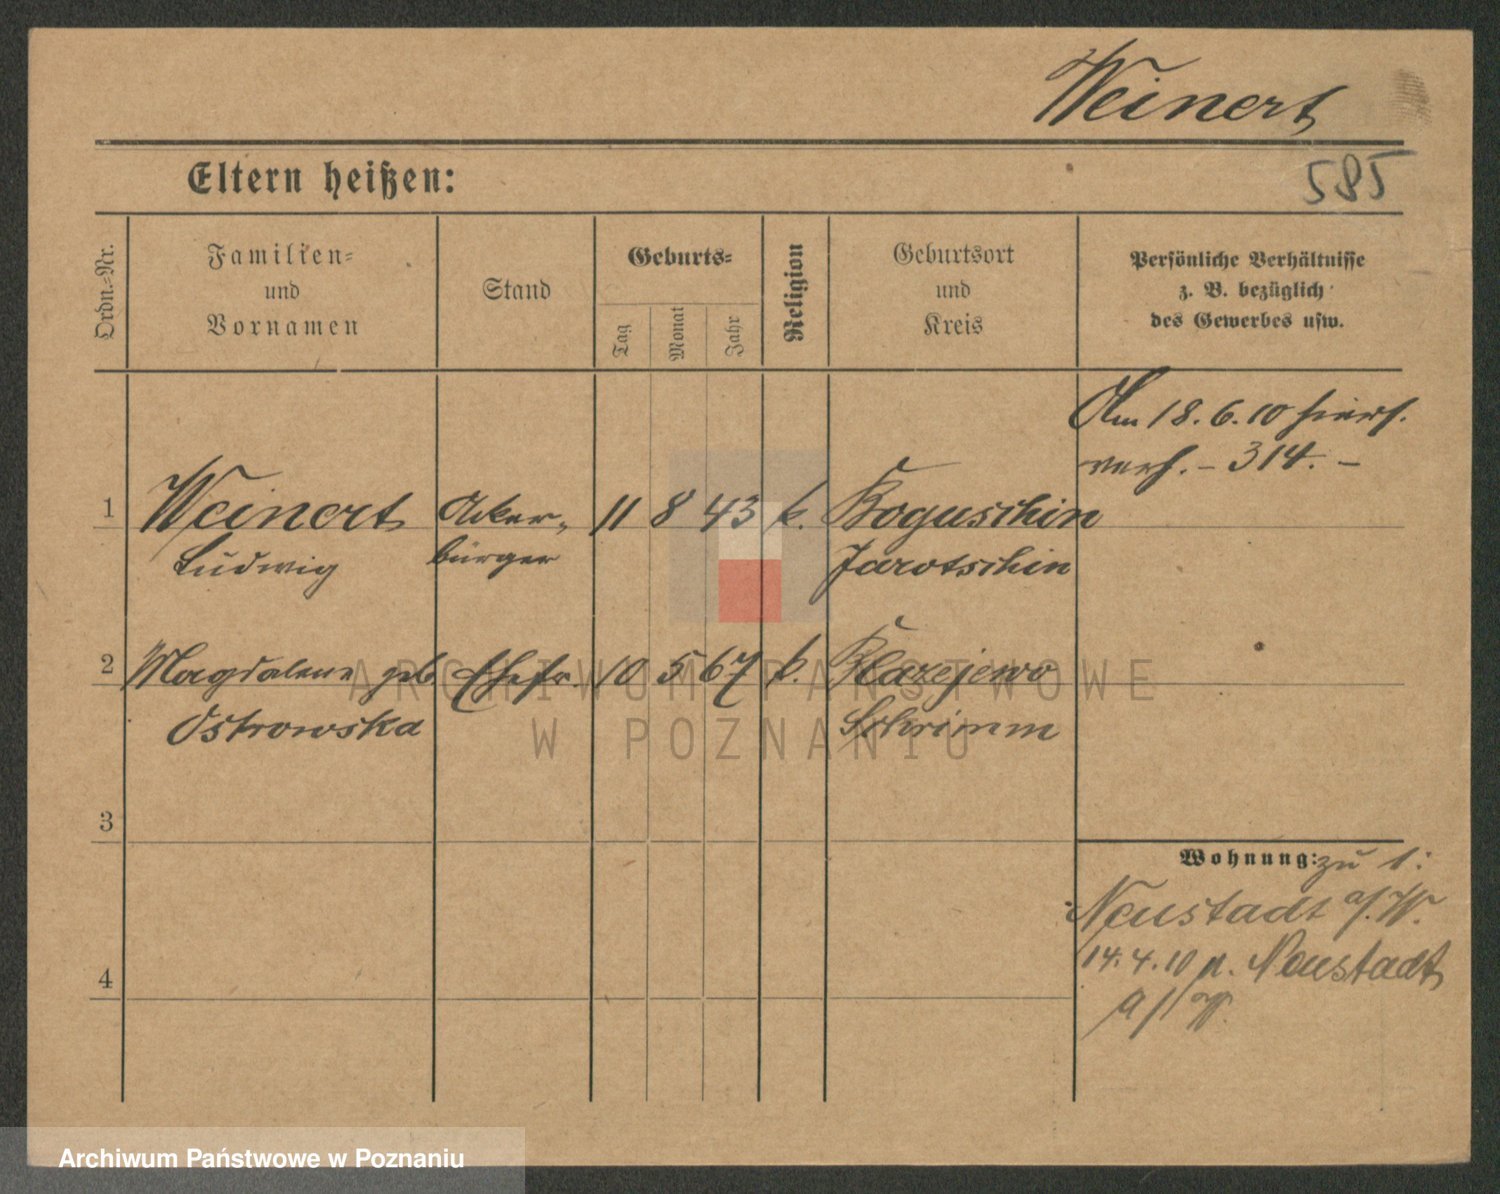 Weinert
585
Eltern heißen:
Ordn.-Nr.
Familien-
und
Vornamen
Stand
Geburts-
Tag
Monat
Jahr
Religion
Geburtsort
und
Kreis
Persönliche Verhältnisse
z. B. bezüglich
des Gewerbes usw.
Am 18.6.10 hiers.
verh. – 314. –
1 Weinert Acker- 11 8 43 k. Boguschin
Ludwig bürger Jarotschin
2 Magdalena geb Ehefr. 10 5 67 k. Blazejewo
Ostrowska Schrimm
3
Wohnung: zu 1:
Neustadt a/W.
14.4.10 n. Neustadt
4
a/W.
ARCHIWUM PAŃSTWOWE
W POZNANIU
Archiwum Państwowe w Poznaniu